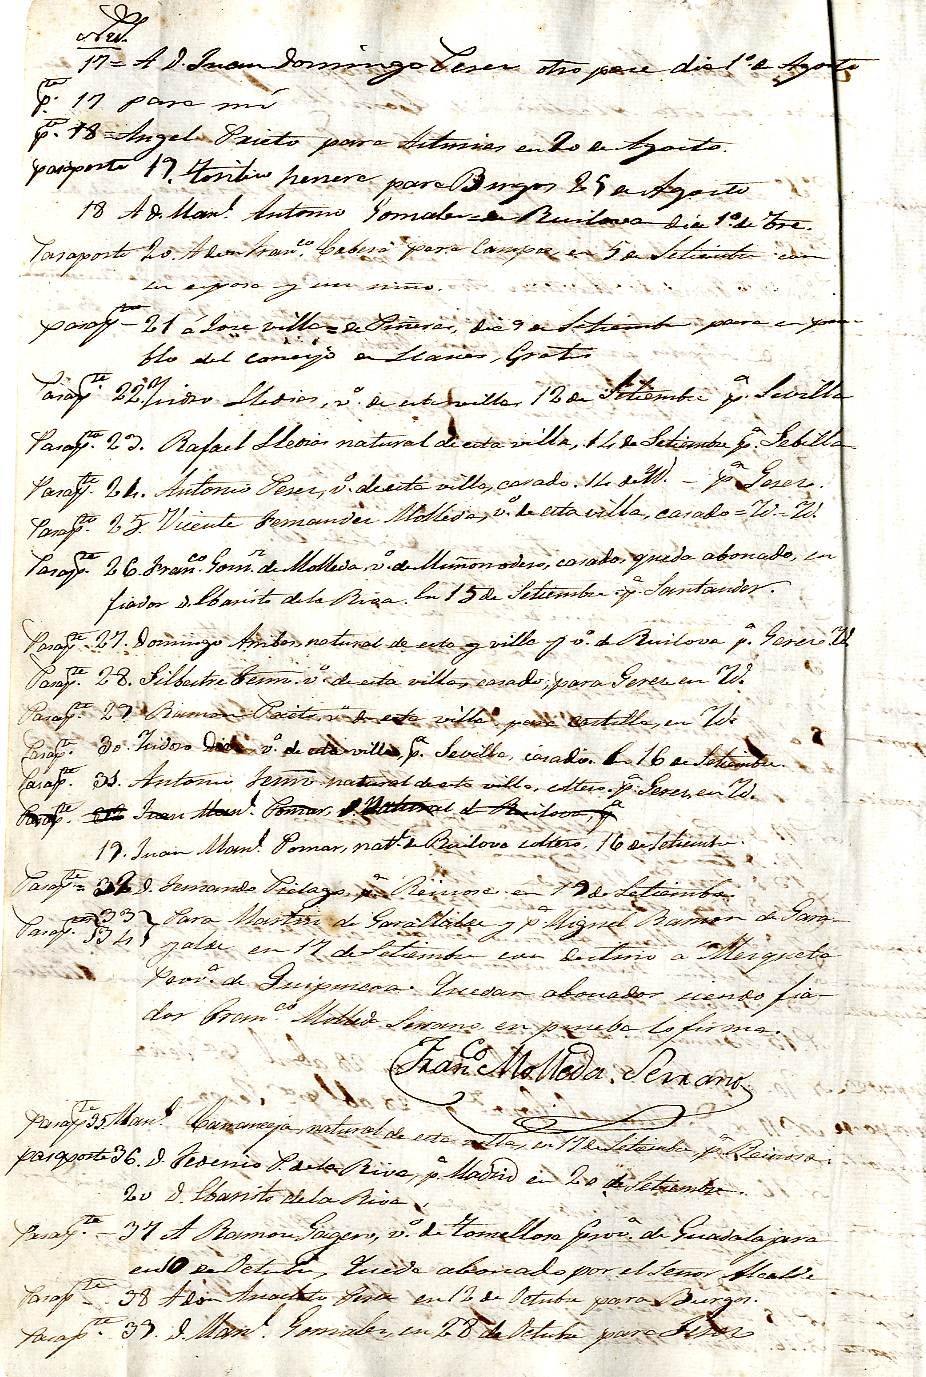 Nº.
17= A D. Juan Domingo Perez otro pase dia 1º de Agosto
pte. 17 para mí
pte. 18= Angel Prieto para Asturias en 20 de Agosto.
pasaporte 19. Toribio herrera para Burgos 25 de Agosto
18 A D. Manl. Antonio Gonzalez de Ruilova dia 1º de 7re.
Pasaporte 20. A don Franco. para Campos, en 5 de Setiembre con
su esposa y un niño.
pasapte - 21 á Jose villa de Piñeres, dia 9 de Setiembre para en pue-
blo del concejo de Llanes, Gratis
Pasapte. 22 Ysidro Lledias, vº. de esta villa, 12 de Setiembre pª. Sevilla
Pasapte. 23. Rafael Lledias natural de esta villa, 14 de Setiembre pª. Sebilla
Pasapte. 24. Antonio Perez, vº. de esta villa, casado. 14 de Yd. - pª Gerez.
Pasapte. 25. Vicente Fernandez Molleda, vº. de esta villa, casado = Yd - Yd.
Pasapte. 26. Franco. Gonz. de Molleda, vº. de Muñorrodero, casado, queda abonado, su
fiador D. Ebaristo de la Riva. En 15 de Setiembre pª Santander.
Pasapte. 27. Domingo natural de esta villa y vº. de Ruilova pª. Gerez Yd.
Pasapte. 28. Silbestre Fernz. vº. de esta villa, casado, para Gerez en Yd.
Pasapte. 29 Ramon Prieto, vº de esta villa para castilla, en Yd.
Pasapte. 30. Ysidoro Diaz vº. de esta villa, pª. Sevilla, casado. en 16 de Setiembre.
Pasapte. 31. Antonio Fernz natural de esta villa, soltero. pª Gerez, en Yd.
Pasapte. 32 Juan Manl. Pomar, Natural de Ruilova, pª
19. Juan Manl. Pomar, natl. de Ruilova soltero. 16 de Setiembre.
Pasapte = 32 D. Fernando Pielago, pª Reinosa en 19 de Setiembre
Pasapte. 33 34 Para Martin de Garaialde y pª Miguel Ramon de Gara-
yalde en 17 de Setiembre con destino a
Provª. de Guipuzcoa. Quedan abonados siendo fia-
dor Franco Molleda Serrano en prueba lo firma.
Franco Molleda. Serrano
Pasapte 35 Manl. natural de esta villa, en 17 de Setiembre pª Reinosa.
pasaporte 36. D. Federico P. de la Riva, pª. Madrid en 20 de Setiembre.
20 D. Ebaristo de la Riva.
Pasapte. - 37 A Ramon Gagero, vº. de Tomellosa provª. de Guadalajara
en 10 de Octubre, Queda abonado por el Señor Alcalde
Pasapte - 38 A don Anacleto en 12 de Octubre para Burgos.
Pasapte - 39. D. Manl. Gonzalez, en 28 de Octubre para Jerez